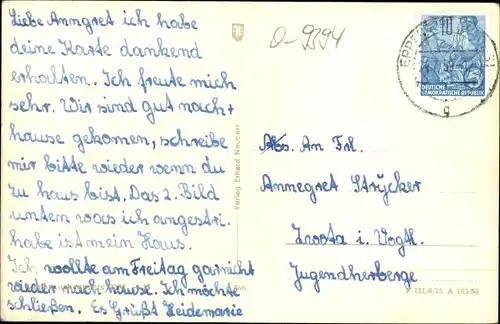 Liebe Anngret ich habe
deine Karte dankend
erhalten. Ich freute mich
sehr. Wir sind gut nach+
hause gekomen, schreibe
mir bitte wieder wenn du
zu haus bist. Das 2. Bild
unten was ich angestri.
habe ist mein Haus.
Ich wollte am Freitag garnicht
wieder nach hause. Ich möchte
schließen. Es Grüßt Heidemarie
O-9394
10
DEUTSCHE
DEMOKRATISCHE REPUBLIK
g
Verlag Erhard Neubert
Abs. An Frl.
Annegret Strÿcker
Zwota i. Vogtl.
Jugendherberge